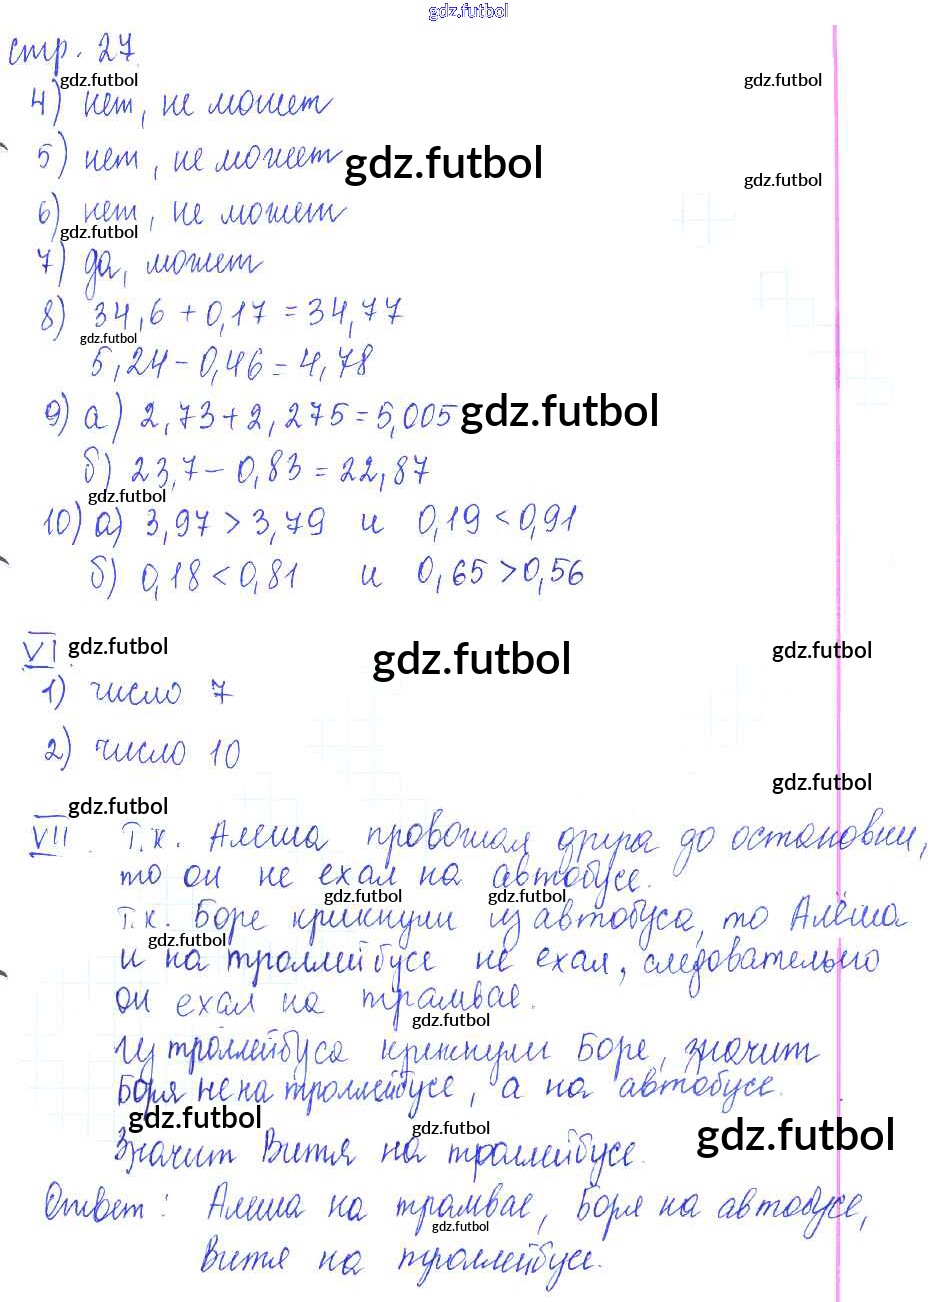 gdz.futbol
стр. 27
gdz.futbol gdz.futbol
4) нет, не может
5) нет, не может gdz.futbol
gdz.futbol
6) нет, не может
gdz.futbol
7) да, может
8) 34,6 + 0,17 = 34,77
gdz.futbol
5,24 - 0,46 = 4,78
9) а) 2,73 + 2,275 = 5,005 gdz.futbol
б) 23,7 - 0,83 = 22,87
gdz.futbol
10) а) 3,97 > 3,79 и 0,19 < 0,91
б) 0,18 < 0,81 и 0,65 > 0,56
VI. gdz.futbol gdz.futbol gdz.futbol
1) число 7
2) число 10
gdz.futbol
gdz.futbol
VII. Т.к. Алеша провожал друга до остановки,
то он не ехал на автобусе.
gdz.futbol gdz.futbol
Т.к. Боре крикнули из автобуса, то Алёша
gdz.futbol
и на троллейбусе не ехал, следовательно
он ехал на трамвае.
gdz.futbol
Из троллейбуса крикнули Боре, значит
Боря не на троллейбусе, а на автобусе.
gdz.futbol gdz.futbol gdz.futbol
Значит Витя на троллейбусе.
Ответ: Алеша на трамвае, Боря на автобусе,
gdz.futbol
Витя на троллейбусе.